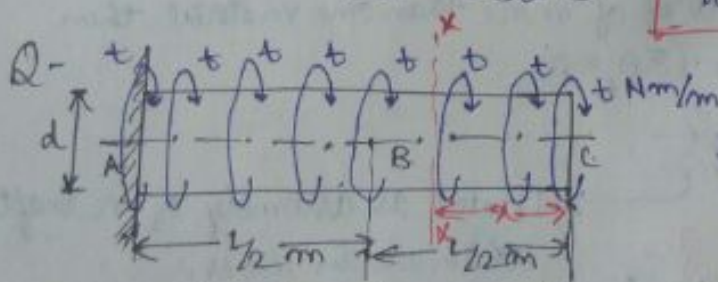 x
Q- t t t t t t t t Nm/m
d A B C
x
x
L/2 m L/2 m